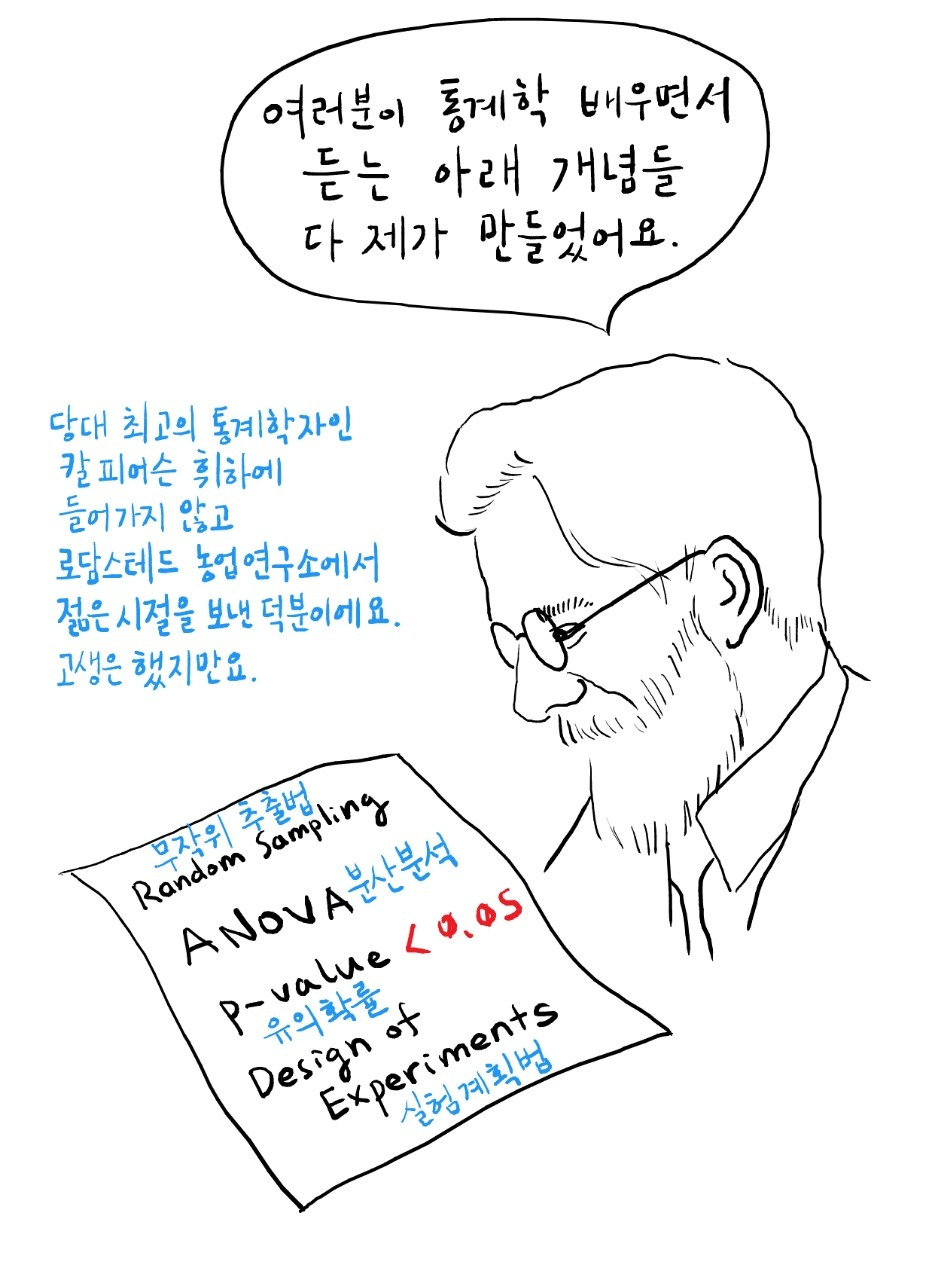 여러분이 통계학 배우면서
듣는 아래 개념들
다 제가 만들었어요.
당대 최고의 통계학자인
칼 피어슨 휘하에
들어가지 않고
로담스테드 농업연구소에서
젊은 시절을 보낸 덕분이에요.
고생은 했지만요.
무작위 추출법
Random Sampling
ANOVA 분산분석
P-value < 0.05
유의확률
Design of
Experiments
실험계획법